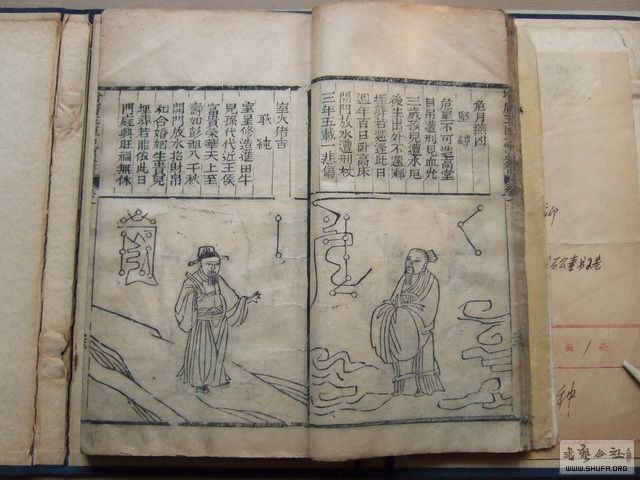 危月燕凶
堅鐔
危星不可造高堂
自吊遭刑見血光
三歲孩兒遭水厄
後生出外不還鄉
埋葬若還逢此日
週年百日臥高床
開門放水遭刑杖
三年五載一悲傷
室火猪吉
耿純
室星修造進田牛
兒孫代代近王侯
富貴榮華天上至
壽如彭祖八千秋
開門放水招財帛
和合婚姻生貴兒
埋葬若能依此日
門庭興旺福無休
1
种
書藝公社
WWW.SHUFA.ORG